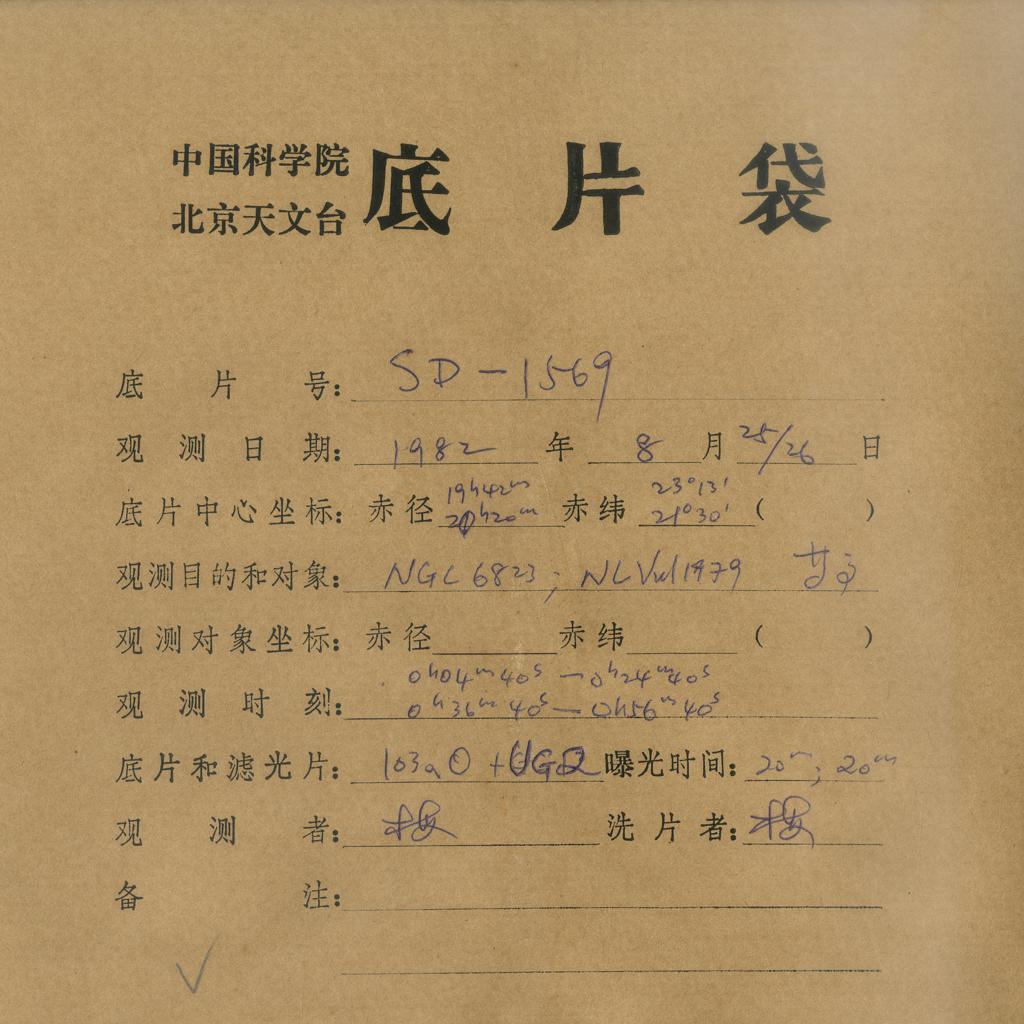 中国科学院
北京天文台
底片袋
底片号: SD-1569
观测日期: 1982 年 8 月 25/26 日
底片中心坐标: 赤径 19h42m 赤纬 23°13' ( )
20h20m 21°30'
观测目的和对象: NGC 6823; NLVul1979
观测对象坐标: 赤径 赤纬 ( )
观测时刻: 0h04m40s — 0h24m40s
0h36m40s — 0h56m40s
底片和滤光片: 103aO + UG2 曝光时间: 20m; 20m
观测者: 梅 洗片者: 梅
备注:
√